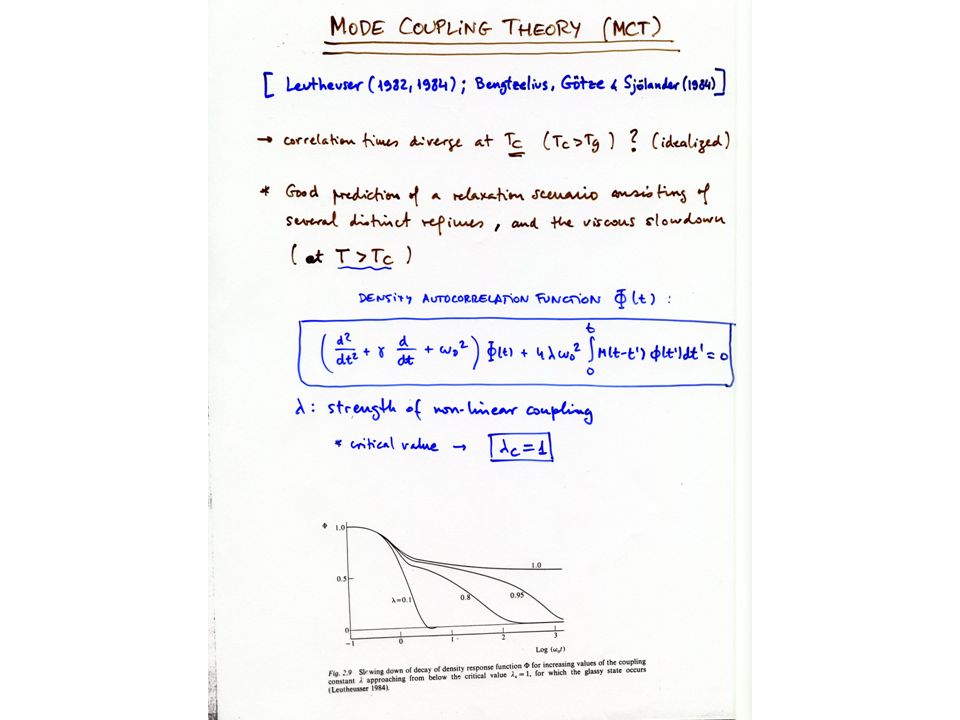 MODE COUPLING THEORY (MCT)
[ Leutheuser (1982, 1984) ; Bengtzelius, Götze & Sjölander (1984) ]
→ correlation times diverge at Tc (Tc > Tg) ? (idealized)
* Good prediction of a relaxation scenario consisting of
several distinct regimes, and the viscous slowdown
(at T > Tc)
DENSITY AUTOCORRELATION FUNCTION Φ(t) :
( d²/dt² + γ d/dt + ω₀² ) Φ(t) + 4 λ ω₀² ∫₀ᵗ M(t-t') ϕ(t') dt' = 0
λ : strength of non-linear coupling
* critical value → λc = 1
Φ 1.0
1.0
0.5
λ=0.1 0.8 0.95
0
-1 0 1 2 3
Log (ω₀t)
Fig. 2.9 Slowing down of decay of density response function Φ for increasing values of the coupling
constant λ approaching from below the critical value λc = 1, for which the glassy state occurs
(Leutheusser 1984).